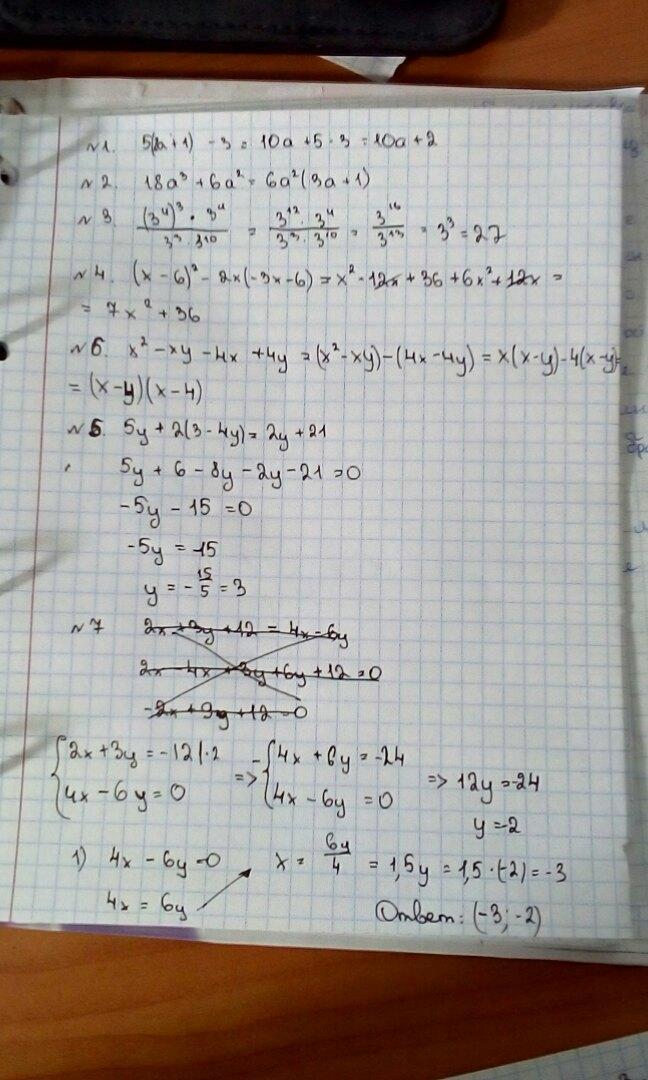 №1. 5(2a+1) - 3 = 10a + 5 - 3 = 10a + 2
№2. 18a³ + 6a² = 6a²(3a+1)
№3. (3⁴)³ · 3⁴ / 3³ · 3¹⁰ = 3¹² · 3⁴ / 3³ · 3¹⁰ = 3¹⁶ / 3¹³ = 3³ = 27
№4. (x - 6)² - 2x(-3x-6) = x² - 12x + 36 + 6x² + 12x =
= 7x² + 36
№6. x² - xy - 4x + 4y = (x² - xy) - (4x - 4y) = x(x-y) - 4(x-y) =
= (x-y)(x-4)
№5. 5y + 2(3-4y) = 2y + 21
5y + 6 - 8y - 2y - 21 = 0
-5y - 15 = 0
-5y = 15
y = - 15/5 = 3
№7 2x + 3y + 12 = 4x - 6y
2x - 4x + 3y + 6y + 12 = 0
-2x + 9y + 12 = 0
{2x + 3y = -12 |·2
{4x - 6y = 0
=> -{4x + 6y = -24
{4x - 6y = 0
=> 12y = -24
y = -2
1) 4x - 6y = 0
4x = 6y
x = 6y/4 = 1,5y = 1,5·(-2) = -3
Ответ: (-3; -2)